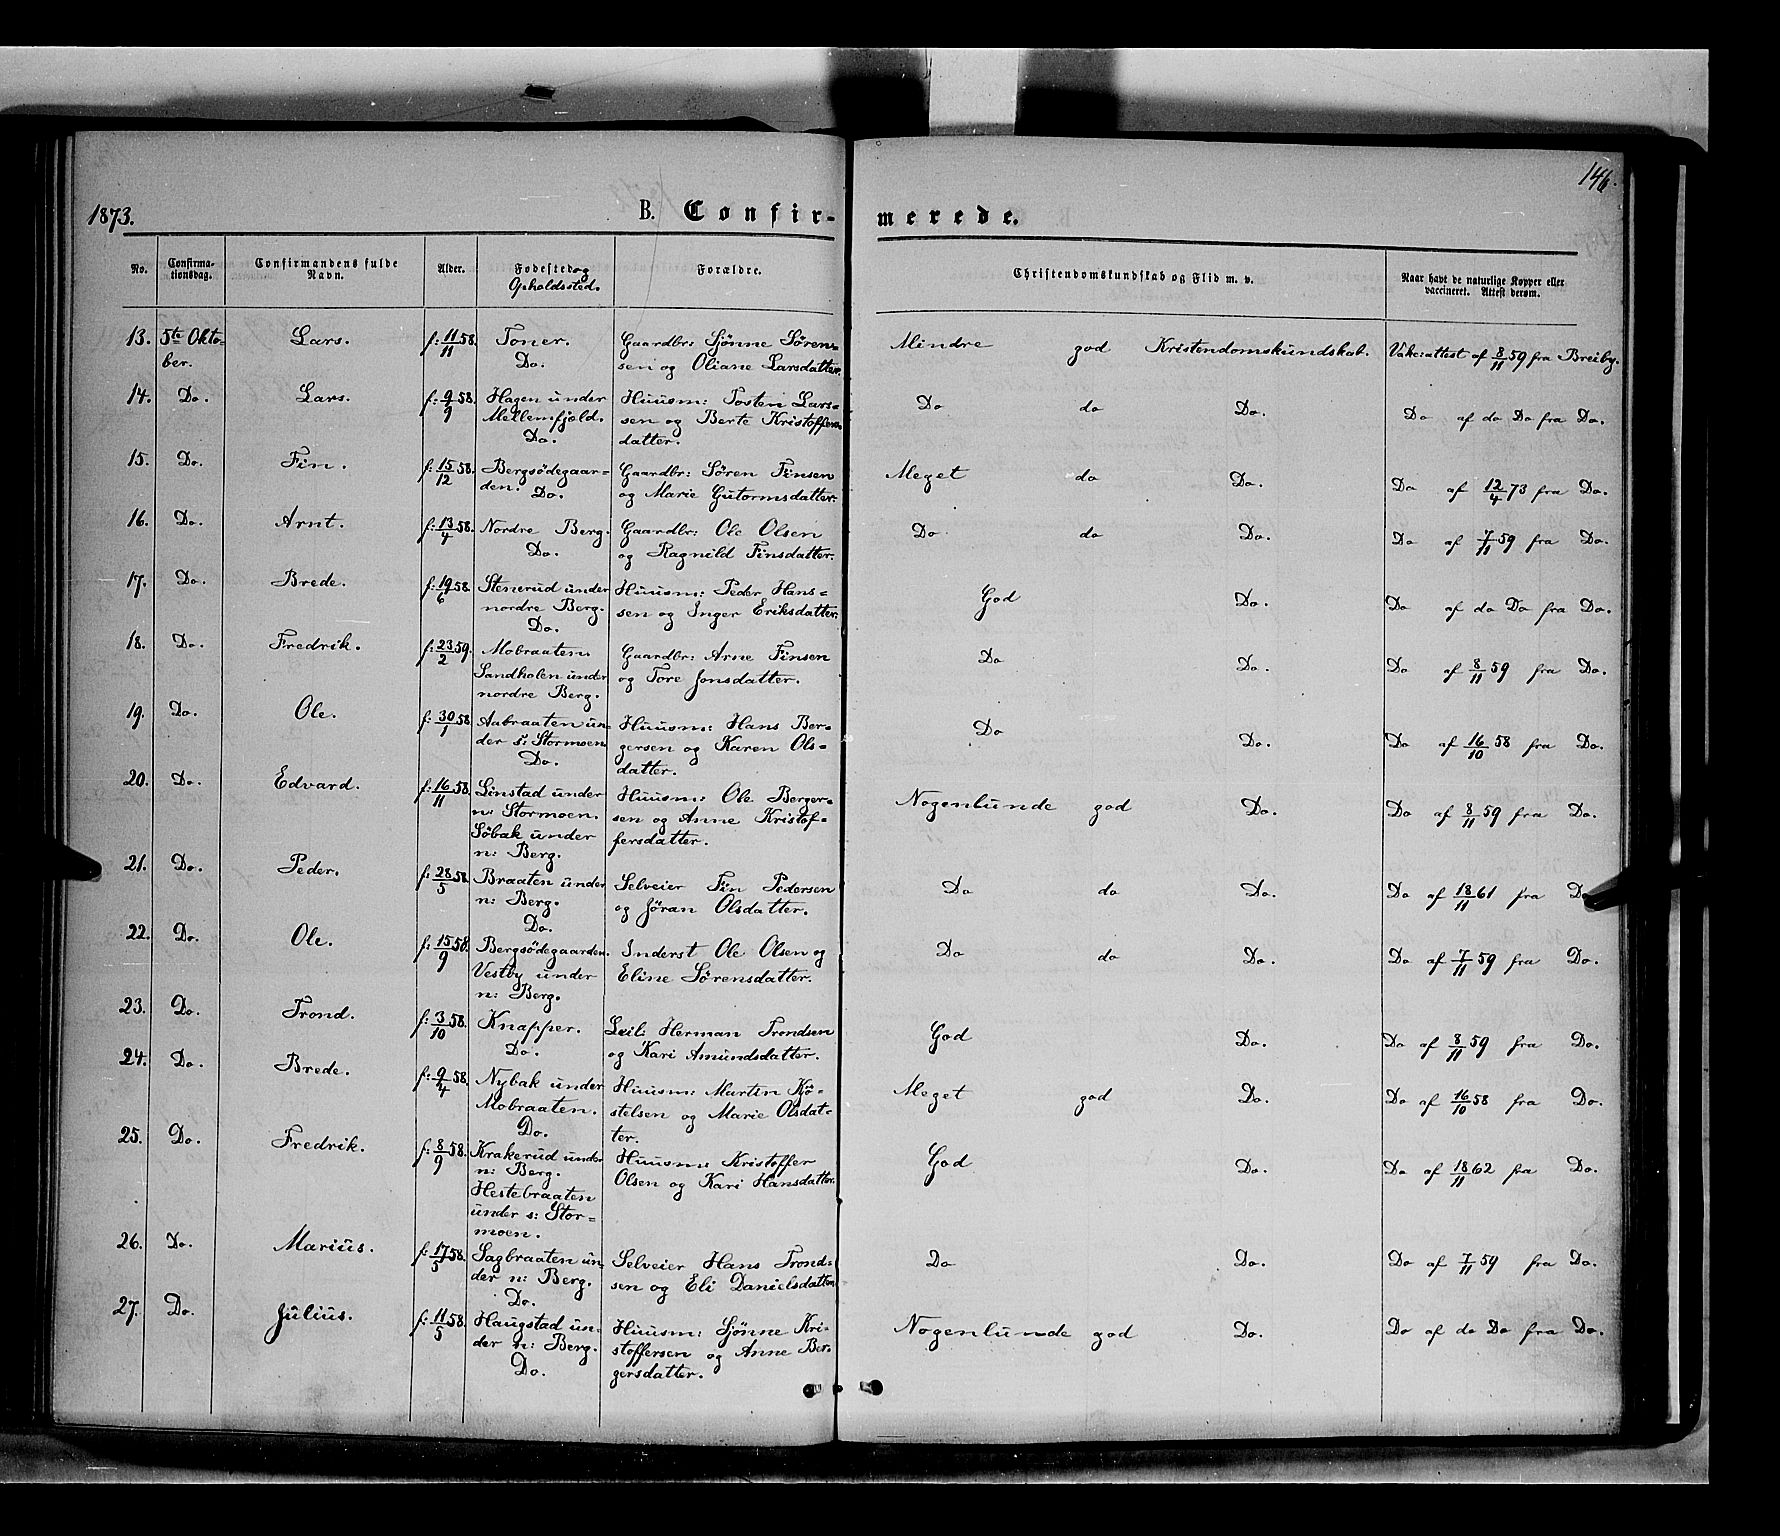 146.
1873.
B. Confir-
merede.
No.
Confirma-
tionsdag.
Confirmandens fulde
Navn.
Alder.
Fødested og
Opholdssted.
Forældre.
Christendomskundskab og Flid m. v.
Naar havt de naturlige Kopper eller
vaccineret. Attest derom.
13. 5te Okto- Lars. f: 11/11 58. Toner. Gaardbr: Sjönne Sören- Mindre god Kristendomskundskab. Vak: attest af 8/11 59 fra Breiby.
ber. Do. sen og Oliane Larsdatter.
14. Do. Lars. f: 9/9 58. Hagen under Huusm: Tosten Lars- Do do Do. Do af do Do fra Do.
Mellemfjeld. sen og Berte Kristoffers-
Do. datter.
15. Do. Fin. f: 15/12 58. Bergsödegaar- Gaardbr: Sören Finsen Meget do Do. Do af 12/4 73 fra Do.
den. Do. og Marie Gutormsdatter.
16. Do. Arnt. f: 13/4 58. Nordre Berg. Gaardbr: Ole Olsen Do do Do. Do af 7/11 59 fra Do.
Do. og Ragnild Finsdatter.
17. Do. Brede. f: 19/6 58. Stenerud under Huusm: Peder Hans- God Do. Do af do Do fra Do.
nordre Berg. sen og Inger Eriksdatter.
Do.
18. Do. Fredrik. f: 23/2 59. Mobraaten. Gaardbr: Arne Finsen Do Do. Do af 8/11 59 fra Do.
Sandholen under og Tore Jonsdatter.
nordre Berg.
19. Do. Ole. f: 30/1 58. Aabraaten un- Huusm: Hans Ber- Do Do. Do af 16/10 58 fra Do.
der s: Stormoen. gersen og Karen Ols-
Do. datter.
20. Do. Edvard. f: 16/11 58. Linstad under Huusm: Ole Berger- Nogenlunde god Do. Do af 8/11 59 fra Do.
n: Stormoen. sen og Anne Kristof-
Söbak under fersdatter.
n: Berg.
21. Do. Peder. f: 28/5 58. Braaten under Selveier Fin Pedersen Do do Do. Do af 18/11 61 fra Do.
n: Berg. og Jöran Olsdatter.
Do.
22. Do. Ole. f: 15/9 58. Bergsödegaarden. Inderst Ole Olsen og Do do Do. Do af 7/11 59 fra Do.
Vestby under Eline Sörensdatter.
n: Berg.
23. Do. Trond. f: 3/10 58. Knapper. Leil: Herman Trondsen God Do. Do af 8/11 59 fra Do.
Do. og Kari Amundsdatter.
24. Do. Brede. f: 9/4 58. Nybak under Huusm: Martin Kjö- Meget god Do. Do af 16/10 58 fra Do.
Mobraaten. stelsen og Marie Olsdat-
Do. ter.
25. Do. Fredrik. f: 8/9 58. Krakerud under Huusm: Kristoffer God Do. Do af 18/11 62 fra Do.
n: Berg. Olsen og Kari Hansdatter.
Hestebraaten
under s: Stor-
moen.
26. Do. Marius. f: 17/5 58. Sagbraaten un- Selveier Hans Trond- Do Do. Do af 7/11 59 fra Do.
der n: Berg. sen og Eli Danielsdatter.
Do.
27. Do. Julius. f: 11/5 58. Haugstad un- Huusm: Sjönne Kri- Nogenlunde god Do. Do af do Do fra Do.
der n: Berg. stoffersen og Anne Ber-
Do. gersdatter.